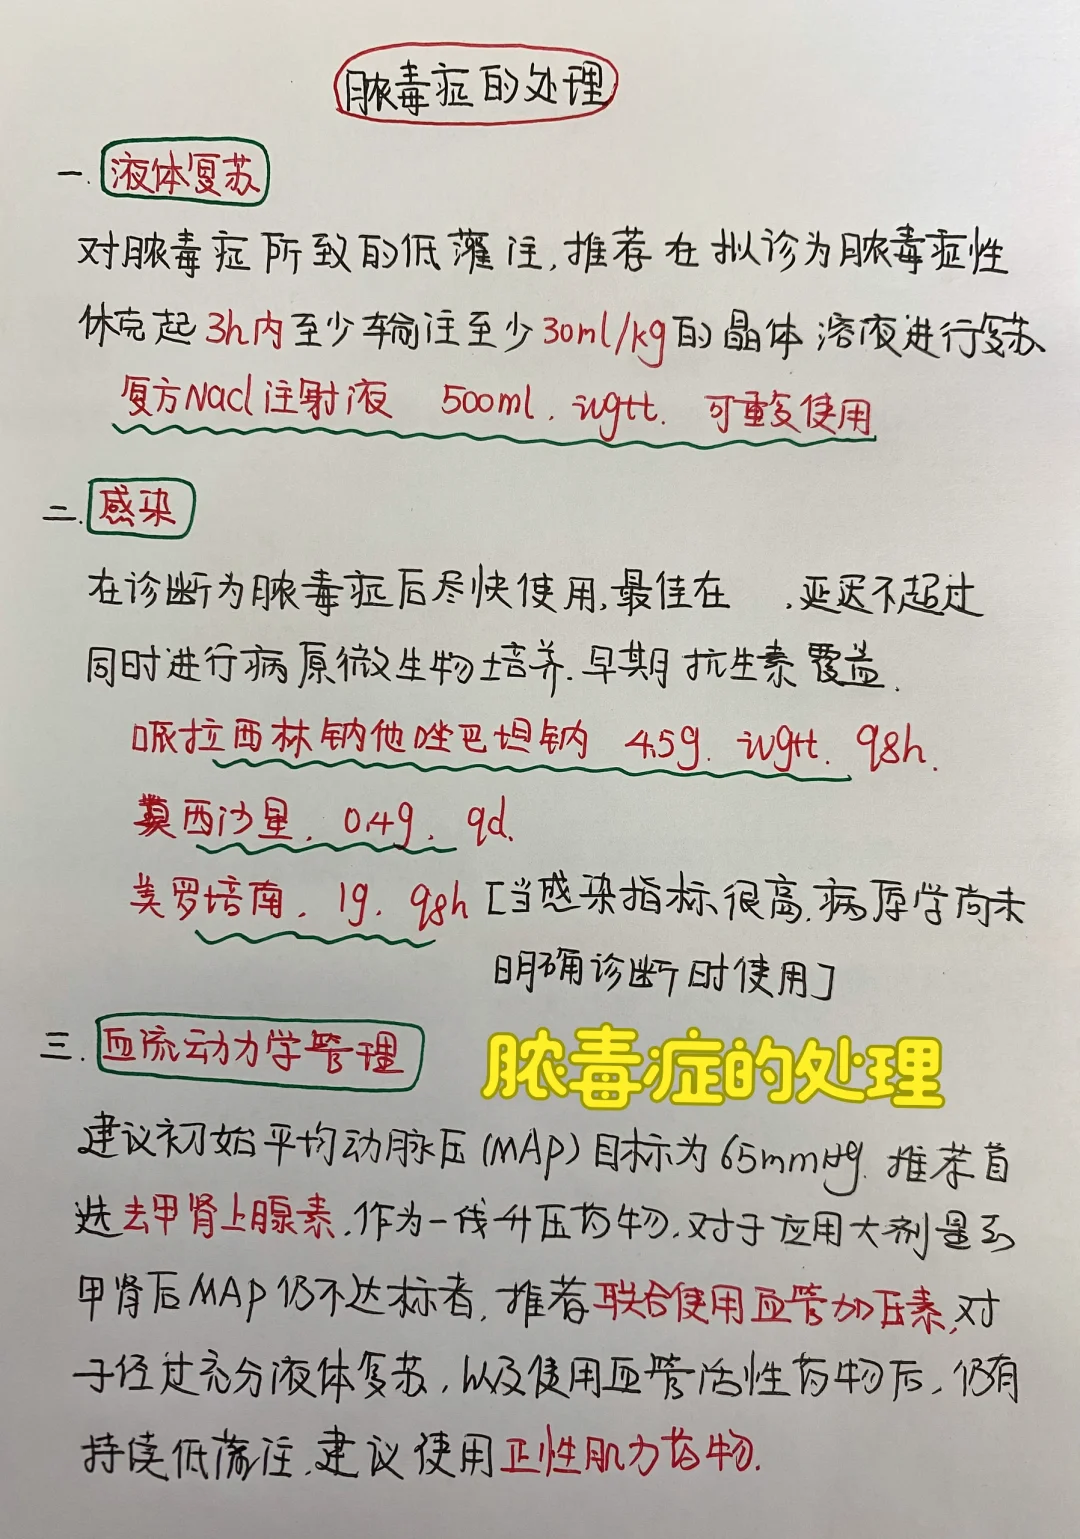 脓毒症的处理
一. 液体复苏
对脓毒症所致的低灌注,推荐在拟诊为脓毒症性
休克起3h内至少输注至少30ml/kg的晶体溶液进行复苏
复方Nacl注射液 500ml. ivgtt. 可重复使用
二. 感染
在诊断为脓毒症后尽快使用,最佳在 ,延迟不超过
同时进行病原微生物培养.早期抗生素覆盖.
哌拉西林钠他唑巴坦钠 4.5g. ivgtt. q8h.
莫西沙星. 0.4g. qd.
美罗培南. 1g. q8h [当感染指标很高,病原学尚未
明确诊断时使用]
三. 血流动力学管理
脓毒症的处理
建议初始平均动脉压(MAP)目标为65mmHg.推荐首
选去甲肾上腺素.作为一线升压药物.对于应用大剂量去
甲肾后MAP仍不达标者,推荐联合使用血管加压素,对
于经过充分液体复苏,以及使用血管活性药物后,仍有
持续低灌注,建议使用正性肌力药物.